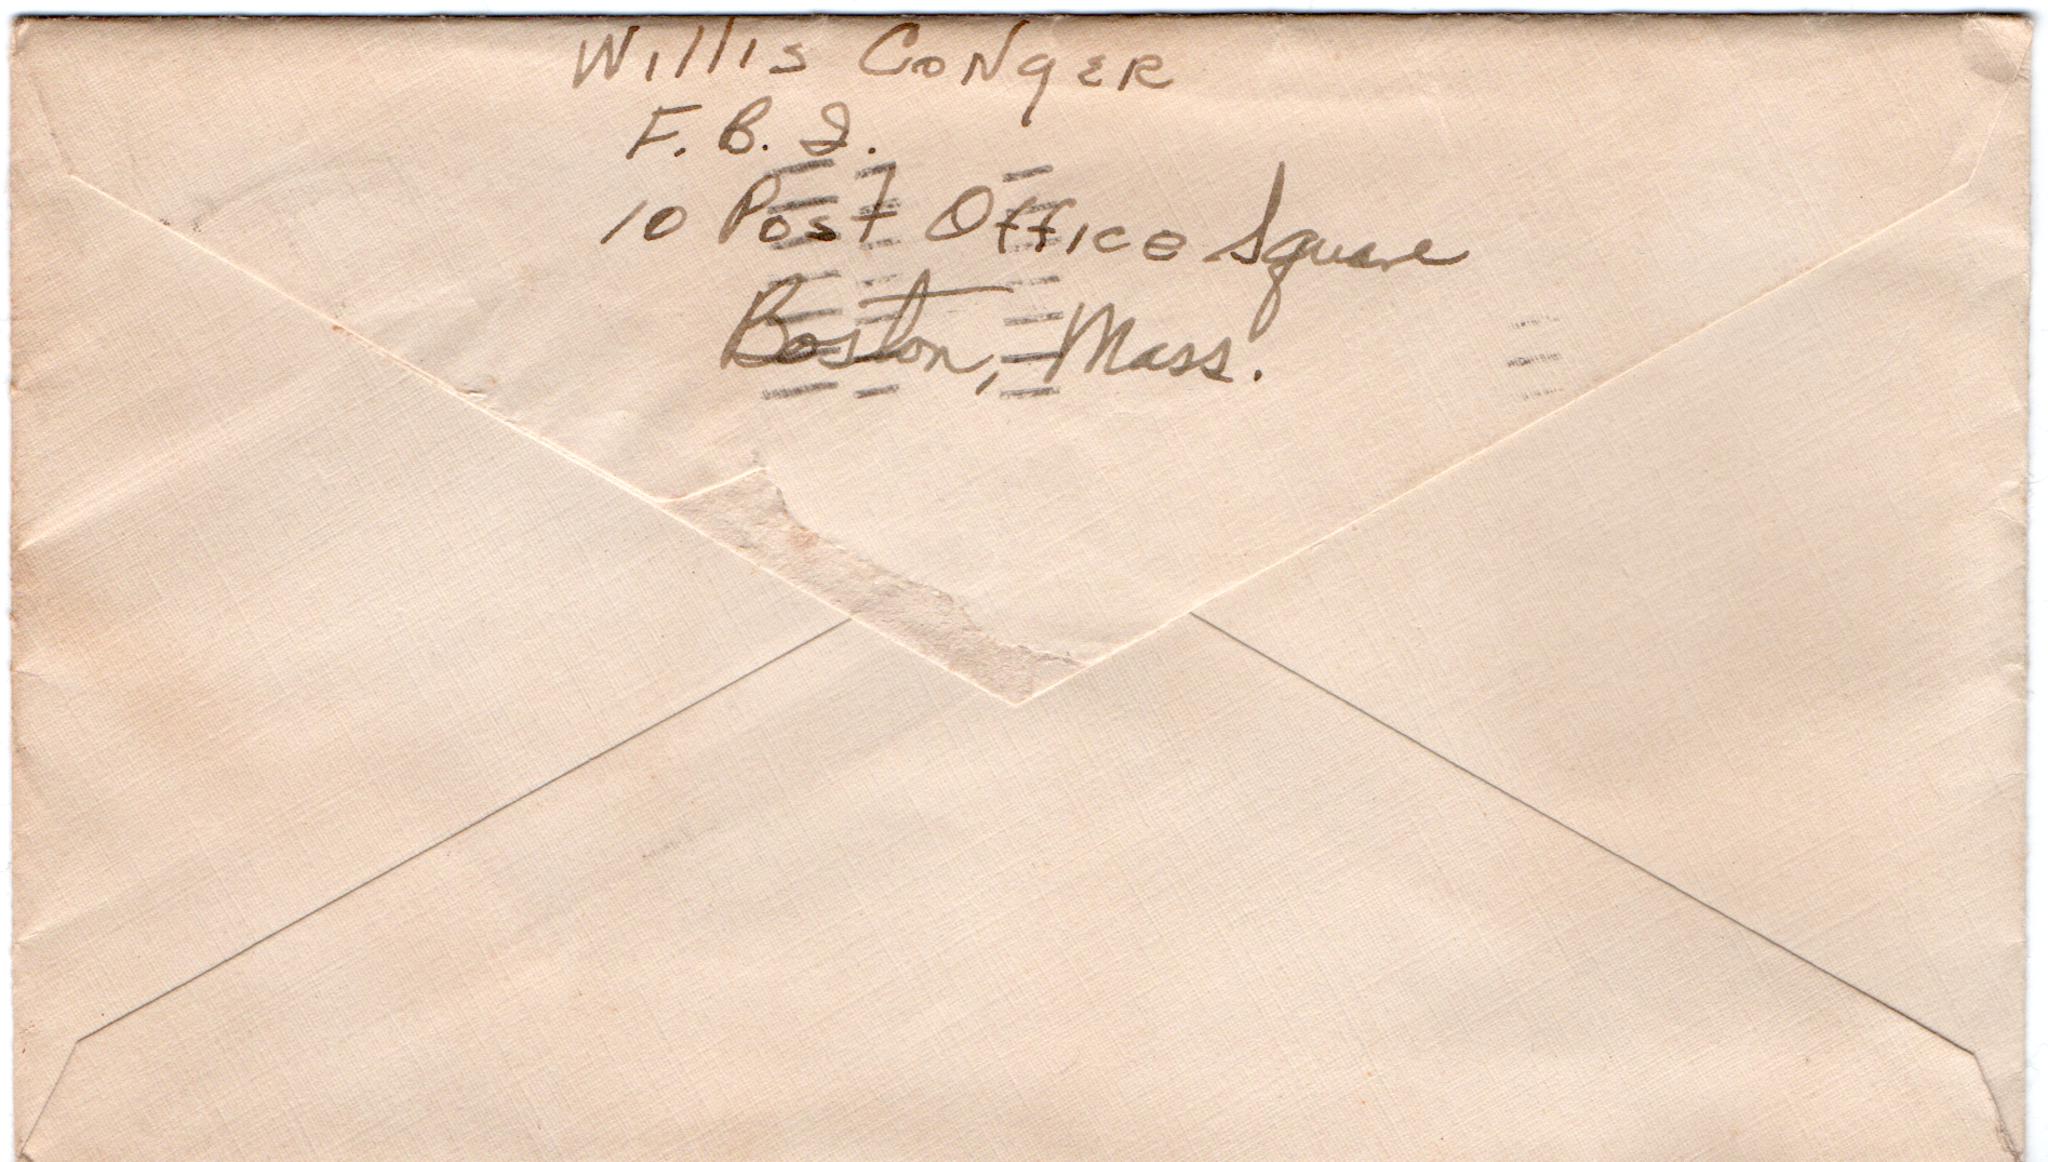 Willis Conger
F. B. I.
10 Post Office Square
Boston, Mass.